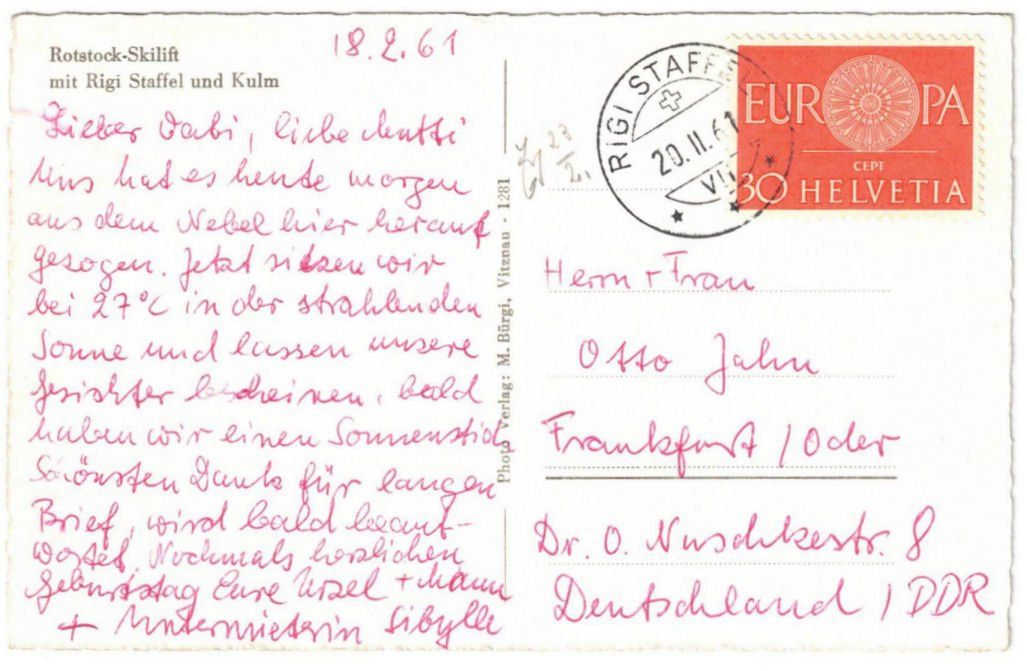 Rotstock-Skilift
mit Rigi Staffel und Kulm
18.2.61
Lieber Vabi, liebe Mutti
Uns hat es heute morgen
aus dem Nebel hier herauf
gezogen. Jetzt sitzen wir
bei 27°C in der strahlenden
Sonne und lassen unsere
Gesichter bescheinen, bald
haben wir einen Sonnenstich
Schönsten Dank für langen
Brief, wird bald beant-
wortet. Nochmals herzlichen
Geburtstag Eure Ursel + Mann
+ Untermieterin Sibylle
Photo Verlag: M. Bürgi, Vitznau - 1281
23/2.
RIGI STAFFEL
20.II.61
VII
EUROPA
CEPT
30 HELVETIA
Herrn + Frau
Otto Jahn
Frankfurt / Oder
Dr. O. Nuschkestr. 8
Deutschland / DDR